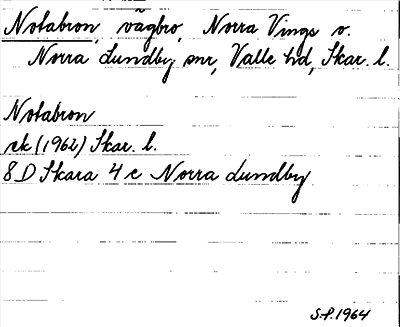 Notabron, vägbro, Norra Vings o.
Norra Lundby snr, Valle hd, Skar. l.
Notabron
rk (1962) Skar. l.
8 D Skara 4 c Norra Lundby
S.P. 1964